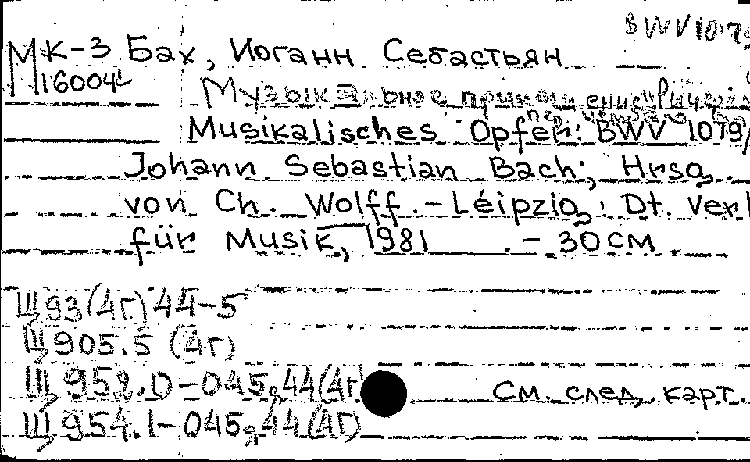 BWV 1079
МК-3 Бах, Иоганн Себастьян
16004
Музыкальное приношение
Musikalisches Opfer: BWV 1079/
Johann Sebastian Bach; Hrsg.
von Ch. Wolff. – Leipzig: Dt. Verl
für Musik, 1981 . – 30 см
Щ93(4Г)44-5
Щ905.5 (4Г)
Щ952.0-045,44(4Г)
Щ954.1-045,44(4Г)
См. след. карт.